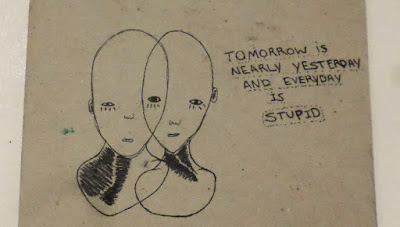 TOMORROW IS
NEARLY YESTERDAY
AND EVERYDAY
IS
STUPID